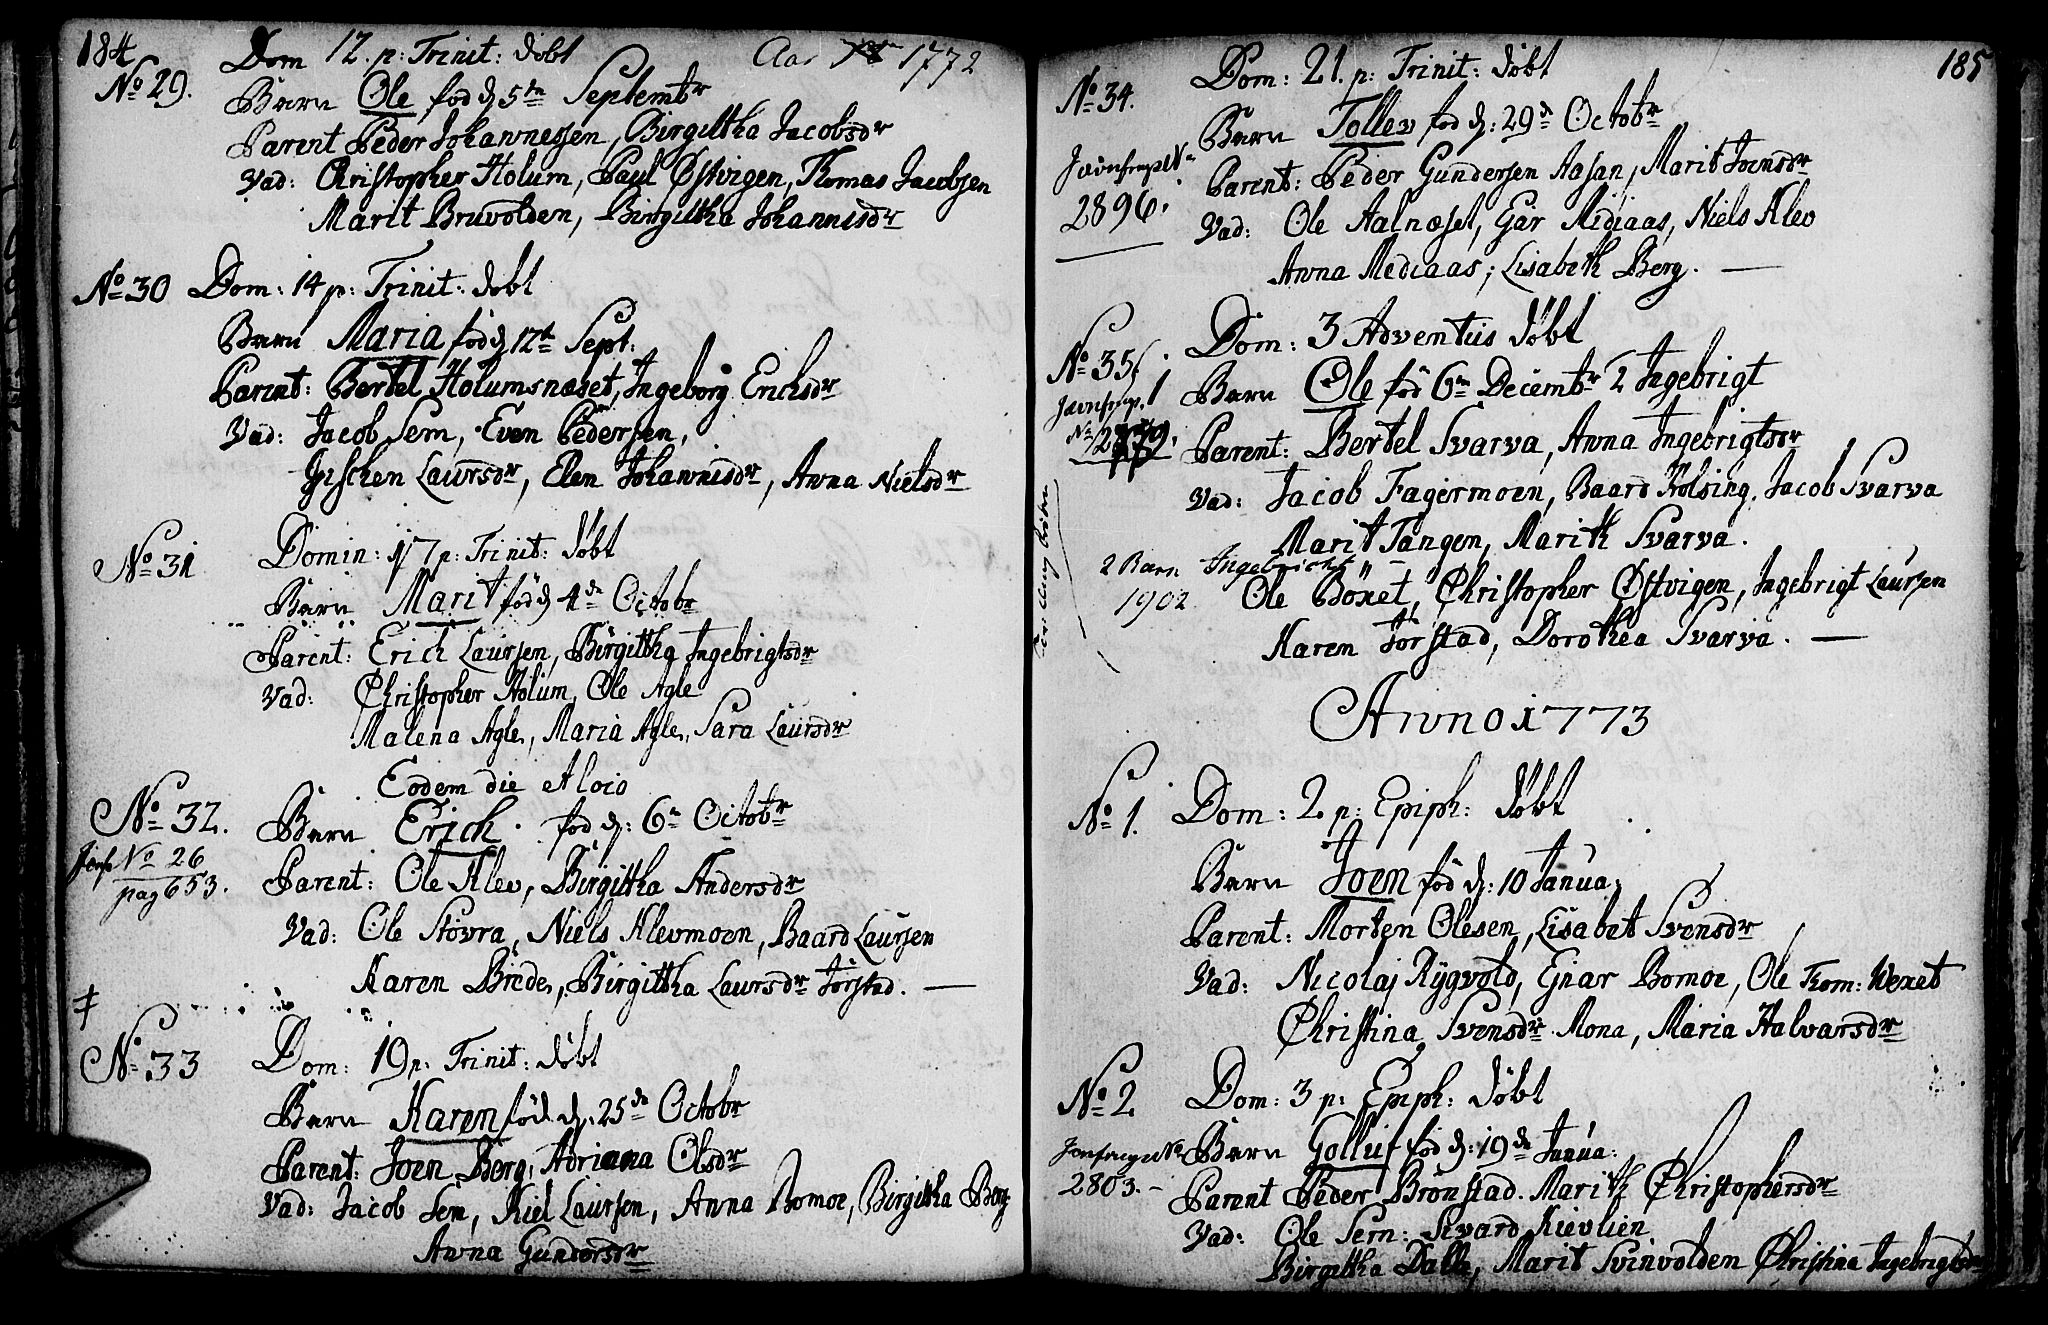 184
Dom 12. p: Trinit: döbt Aar 1772
No 29.
Barn Ole fød d 5te Septembr
Parent Peder Johannessen, Birgittha Jacobsdr
Vad: Christopher Holum, Paul Østvigen, Thomas Jacobsen
Marit Bruvolden, Birgittha Johannisdr
No 30 Dom: 14 p: Trinit: döbt
Barn Maria fød d 12te Sept:
Parent: Bertel Holumsnæset, Ingeborg Erichsdr
Vad: Jacob Sem, Even Pedersen,
Gischen Laursdr, Elen Johannisdr, Anna Nielsdr
No 31 Domin: 17 p: Trinit: döbt
Barn Marit fød d 4de Octobr
Parent: Erich Laursen, Birgittha Ingebrigtsdr
Vad: Christopher Holum, Ole Agle
Malena Agle, Maria Agle, Sara Laursdr
Eodem die
No 32. Barn Erich fød d: 6te Octobr
No 26
pag 653.
Parent: Ole Klev, Birgittha Andersdr
Vad: Ole Stövra, Niels Klevmoen, Baard Laursen
Karen Brede, Birgittha Laursdr Jörstad. —
No 33 Dom: 19 p: Trinit: döbt
Barn Karen fød d: 25de Octobr
Parent: Joen Berg, Adriana Olsdr
Vad: Jacob Sem, Kiel Laursen, Anna Bomoe, Birgitha Berg
Anna Gundersdr
185
Dom: 21. p: Trinit: döbt
No 34.
Barn Tollev fød d: 29de Octobr
2896.
Parent: Peder Gundersen Aasan, Marit Joensdr
Vad: Ole Aalnæset, Gar Mediaas, Niels Klev
Anna Mediaas, Lisabeth Berg. —
No 35. Dom: 3 Adventus döbt
1 Barn Ole fød 6te Decembr 2 Ingebrigt
Parent: Bertel Svarva, Anna Ingebrigtsdr
Vad: Jacob Fagermoen, Baard Kolsing, Jacob Svarva
Marit Tangen, Marith Svarva.
2 Barn Ingebricht
1902 Ole Böxet, Christopher Østvigen, Ingebrigt Laursen
Karen Jörstad, Dorothea Svarva. —
Anno 1773
No 1. Dom: 2. p: Epiph: döbt
Barn Joen fød d: 10 Janua:
Parent: Morten Olesen, Lisabet Svensdr
Vad: Nicolaj Rygvold, Ejnar Bomoe, Ole Thom: Wexet
Christina Svensdr Mona, Maria Halvarsdr
No 2. Dom: 3 p: Epiph: döbt
Barn Golluf fød d: 19de Janua:
2803. —
Parent Peder Brönstad. Marith Christophersdr
Vad: Ole Sem: Sivard Kievlien
Birgittha Dalle, Marit Svinvolden Christina Ingebrigtsdr